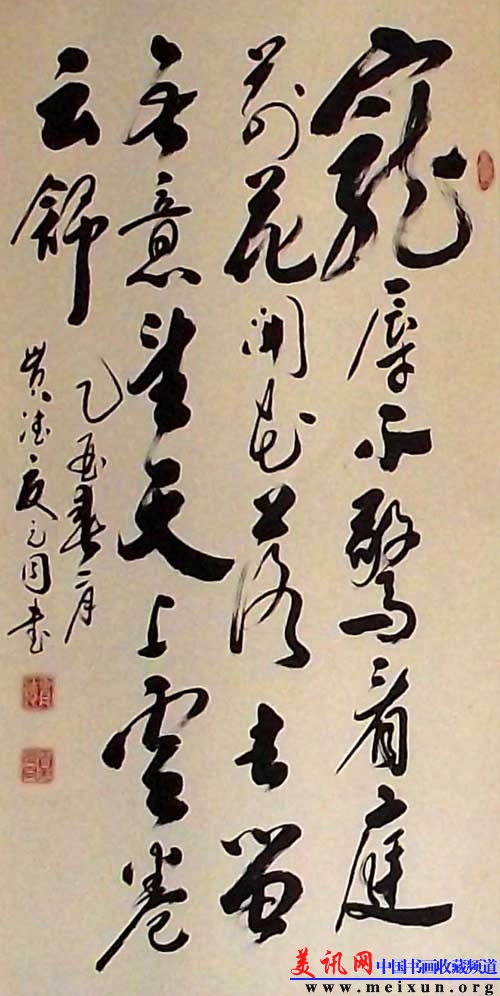 寵辱不驚看庭
前花開花落去留
无意望天上雲卷
云舒
乙酉春二月
书
美讯网中国书画收藏频道
www.meixun.org